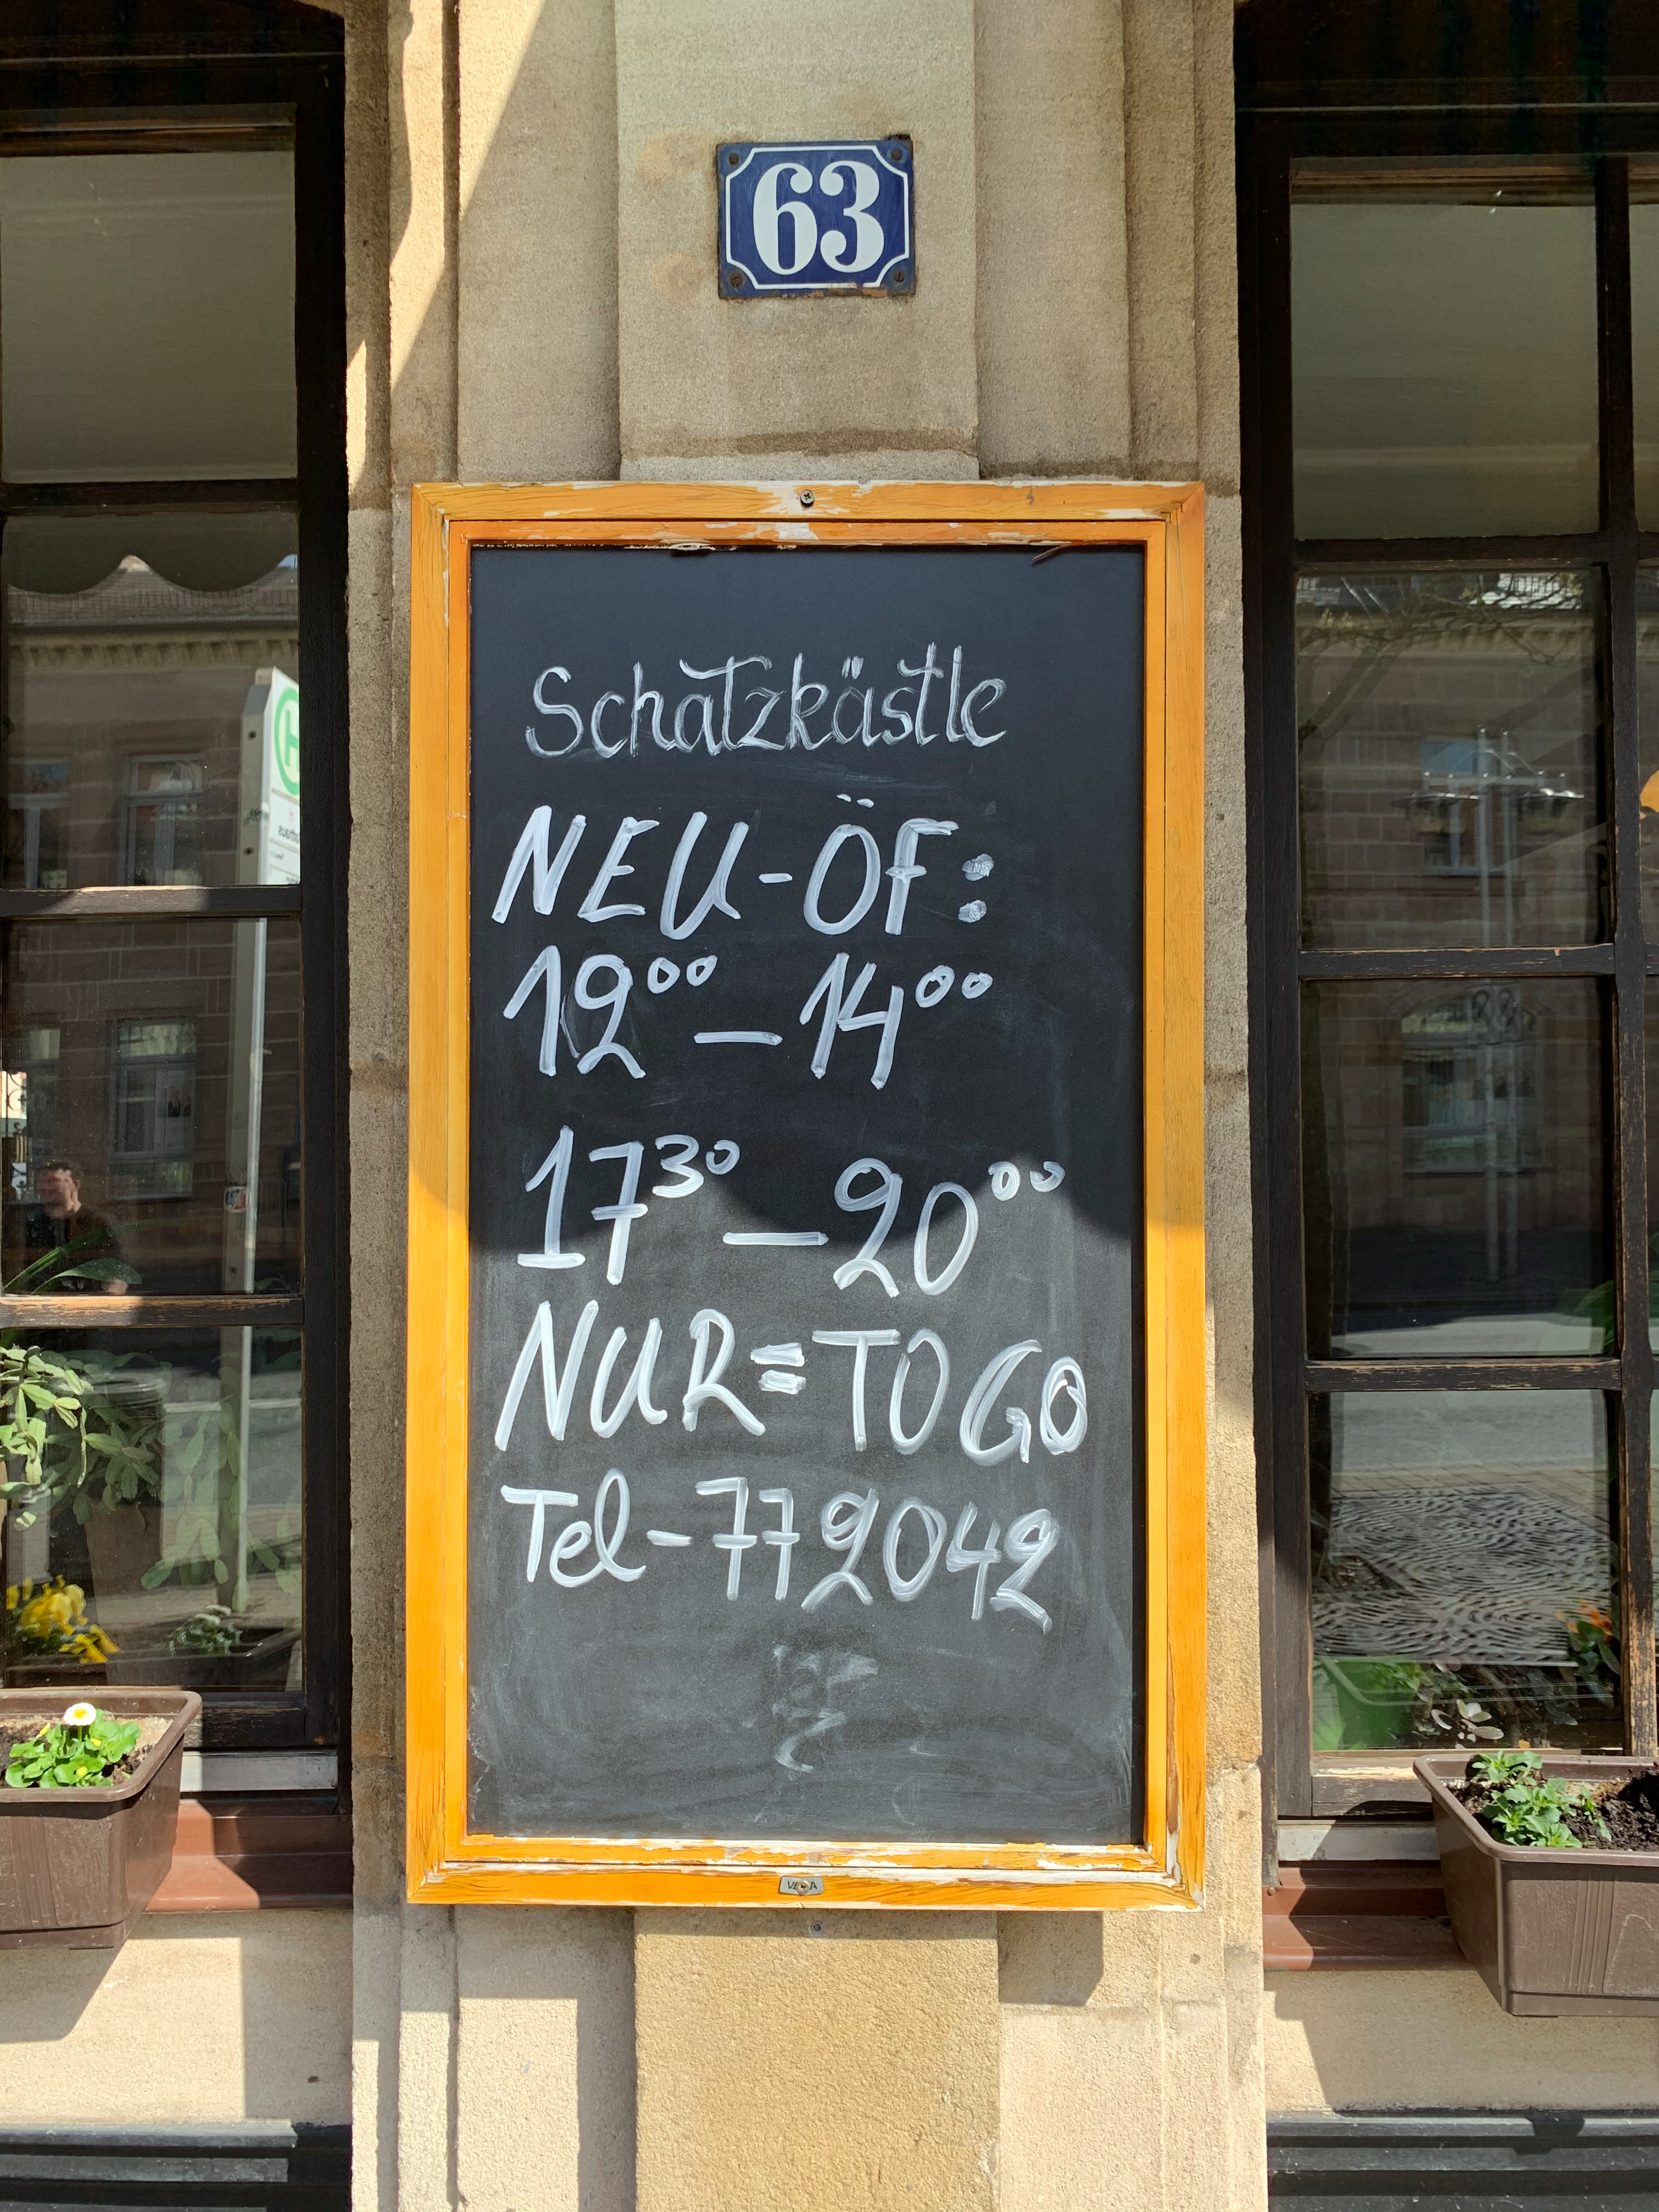 63
Schatzkästle
NEU-ÖF:
12⁰⁰ – 14⁰⁰
17³⁰ – 20⁰⁰
NUR = TO GO
Tel - 772042
H